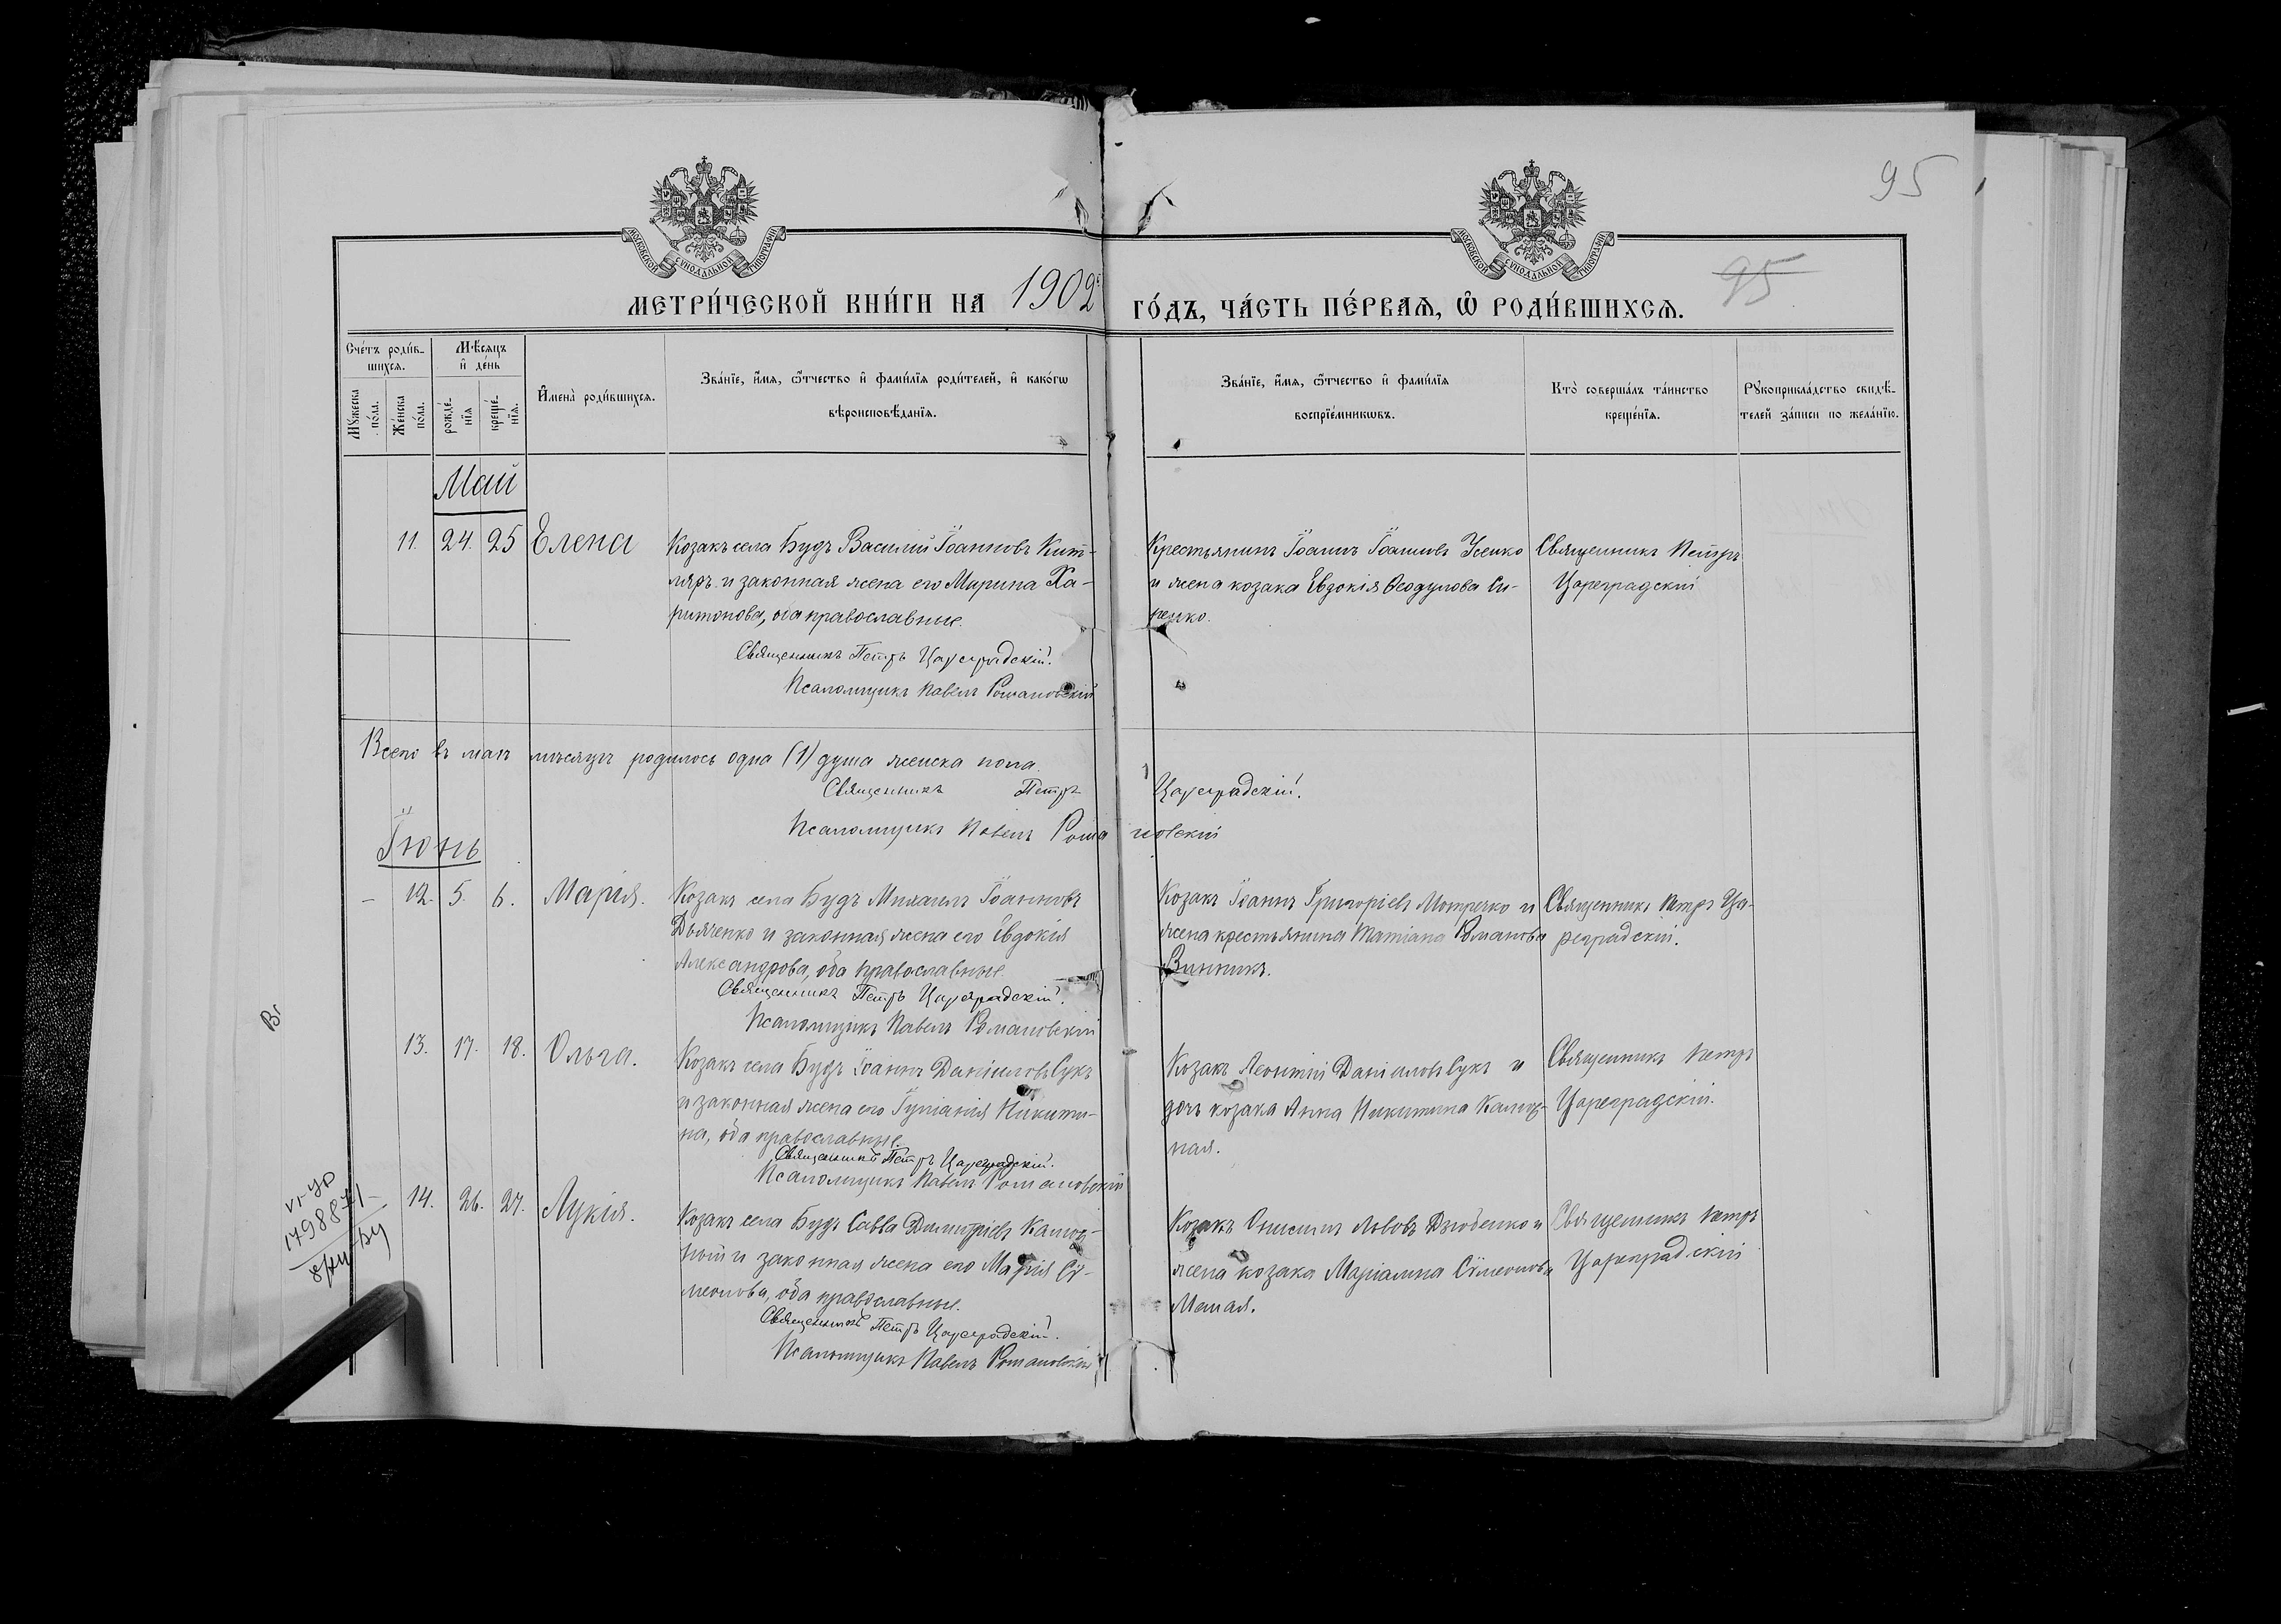 95
МОСКОВСКОЙ СУНОДАЛЬНОЙ ТИПОГРАФІИ
МОСКОВСКОЙ СУНОДАЛЬНОЙ ТИПОГРАФІИ
МЕТРИ́ЧЕСКОЙ КНИ́ГИ НА 1902 ГО́ДЪ, ЧА́СТЬ ПЕ́РВАѦ, Ѡ҆ РОДИ́ВШИХСѦ.
95
Сче́тъ роди́в-
шихсѧ.
Мѣ́сѧцъ
и҆ де́нь
Мꙋ́жеска
по́ла.
Же́нска
по́ла.
рожде́-
нїѧ
креще́-
нїѧ.
И҆мена̀ роди́вшихсѧ.
Зва́нїе, и҆́мѧ, ѻ҆́тчество и҆ фами́лїѧ роди́телей, и҆ како́гѡ
вѣроисповѣ́данїѧ.
Зва́нїе, и҆́мѧ, ѻ҆́тчество и҆ фами́лїѧ
воспрїе́мникѡвъ.
Кто̀ соверша́лъ та́инство
креще́нїѧ.
Рꙋкоприкла́дство свидѣ́-
телей за́писи по жела́нїю.
Май
11. 24. 25 Елена
Козакъ села Будъ Василій Іоанновъ Кит-
ляръ и законная жена его Марина Ха-
ритонова, оба православные.
Священникъ Петръ Цареградскій.
Псаломщикъ Павелъ Романовскій
Крестьянинъ Іоаннъ Іоанновъ Усенко
и жена козака Евдокія Ѳеодулова Си-
ренко.
Священникъ Петръ
Цареградскій
Всего въ маѣ мѣсяцѣ родилось одна (1) душа женска пола.
Священникъ Петръ Цареградскій.
Псаломщикъ Павелъ Романовскій
Іюнь
- 12. 5. 6. Марія.
Козакъ села Будъ Михаилъ Іоанновъ
Дьяченко и законная жена его Евдокія
Александрова, оба православные.
Священникъ Петръ Цареградскій.
Псаломщикъ Павелъ Романовскій
Козакъ Іоаннъ Григоріевъ Мотречко и
жена крестьянина Татіана Романова
Винникъ.
Священникъ Петръ Ца-
реградскій.
13. 17. 18. Ольга.
Козакъ села Будъ Іоаннъ Даніиловъ Сукъ
и законная жена его Іуліанія Никити-
на, оба православные.
Священникъ Петръ Цареградскій.
Псаломщикъ Павелъ Романовскій
Козакъ Леонтій Даніиловъ Сукъ и
дочь козака Анна Никитина
ная.
Священникъ Петръ
Цареградскій.
14. 26. 27. Лукія.
Козакъ села Будъ Савва Димитріевъ
и законная жена его Марія Сѵ-
меонова, оба православные.
Священникъ Петръ Цареградскій.
Псаломщикъ Павелъ Романовскій
Козакъ Онисимъ Львовъ Дзюбенко и
жена козака Маріамна Сѵмеонова
Малая.
Священникъ Петръ
Цареградскій